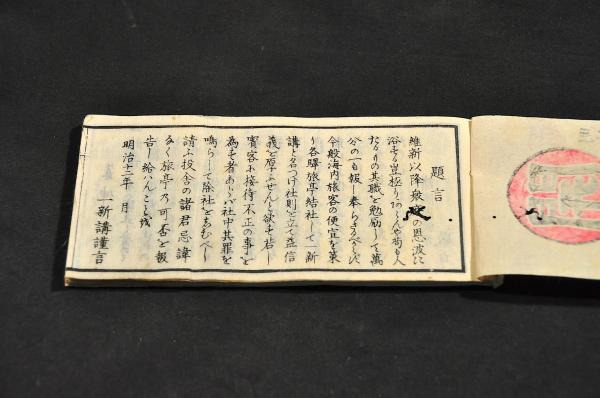 題言
維新以降衆庶の恩波に
浴する豈極りあらんや苟も人
たるもの其職を勉励して萬
分の一も報し奉らさるへからす
今般海内旅客の便宜を策
り各驛旅亭結社して一新
講と名つけ社則を立て益信
義を厚ふせんと欲す若し
賓客に接待不正の事を
為す者あらハ社中其罪を
鳴らして除社せしむへし
請ふ投舎の諸君忌諱
なく旅亭の可否を報
告し給はんことを
明治十二年 月
一新講謹言